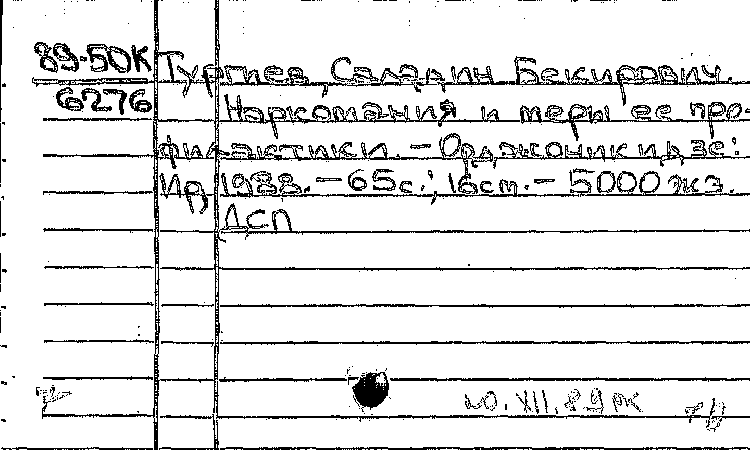 89-50К Тургиев, Саладин Бекирович.
6276 Наркомания и меры ее про-
филактики. - Орджоникидзе:
Ир, 1988. - 65с.; 16см. - 5000 экз.
ДСП
20.XII.89 рк